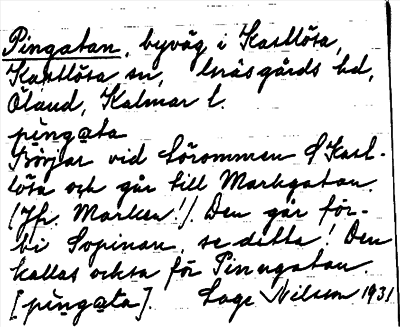 Pingatan, byväg i Kastlösa,
Kastlösa sn, Gräsgårds hd,
Öland, Kalmar l.
pìngata
Börjar vid Sörommen i Kast-
lösa och går till Markgatan.
(Jfr. Marken!). Den går för-
bi Sopinan, se detta! Den
kallas också för Pinngatan
[pìngata]. Lage Nilsson 1931